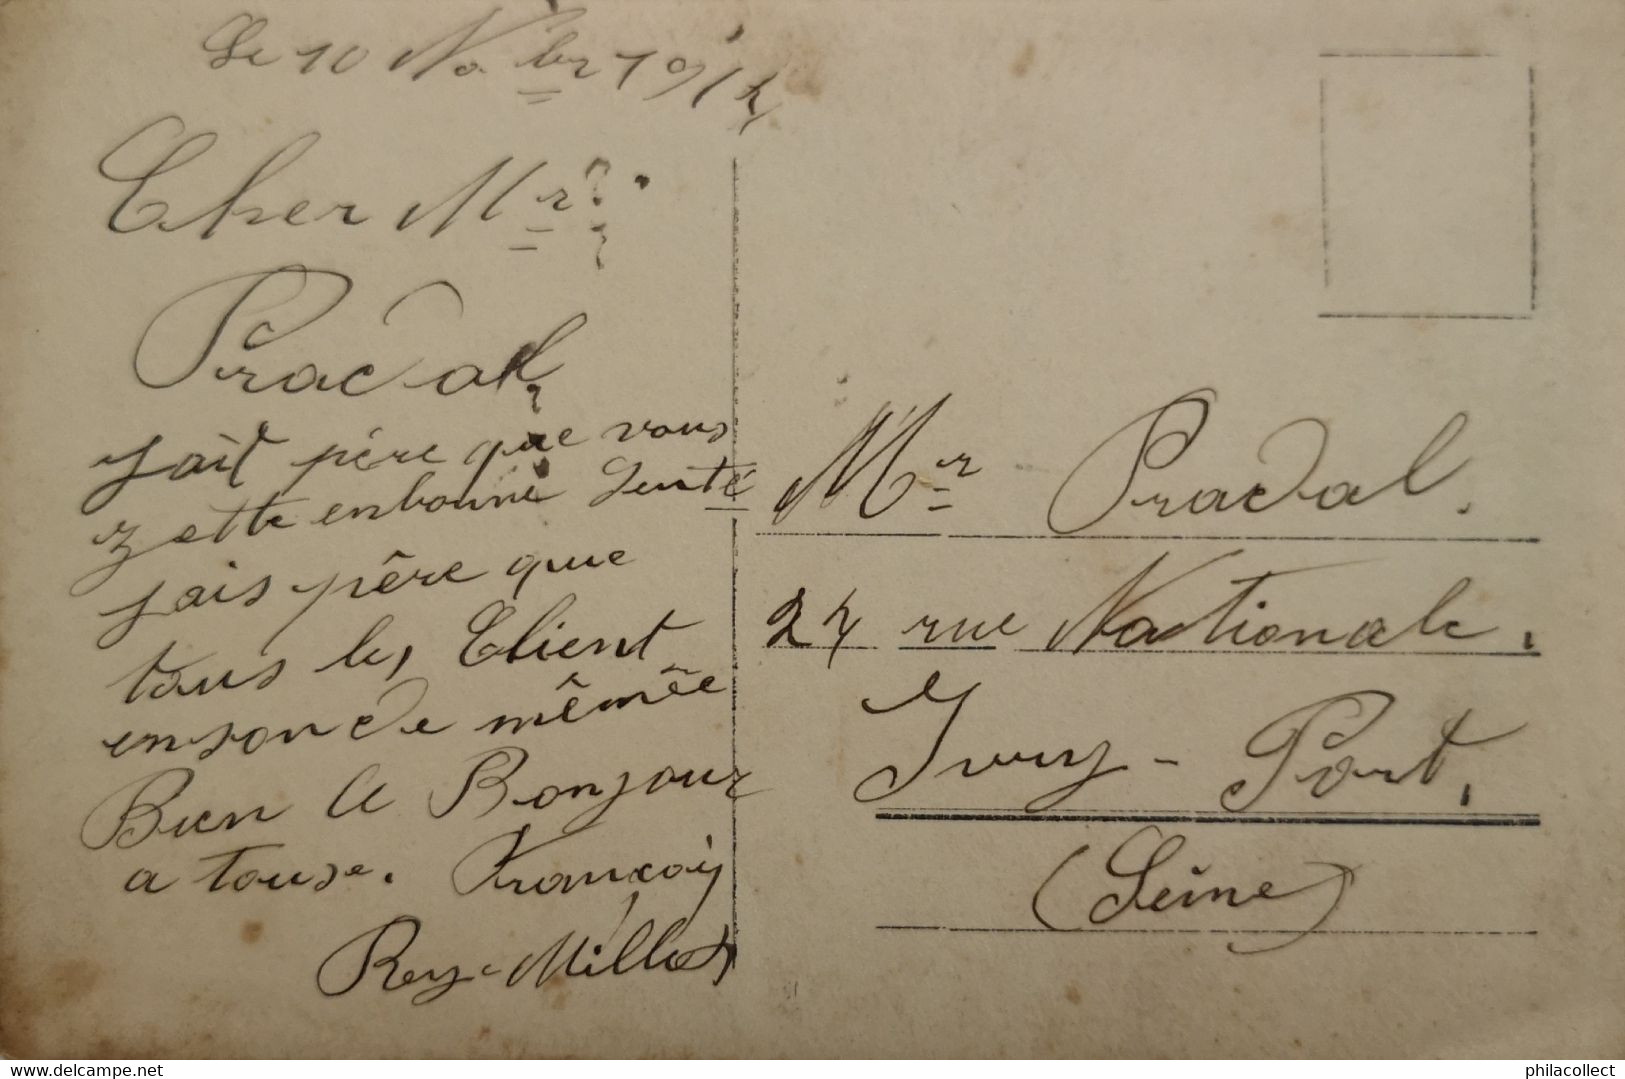 Le 10 Nobre 1914
Cher Mr
Pradal
jait père que vous
zette enbonne senté
jais père que
tous les Client
enson de mêmêe
Bien le Bonjour
a touse. François
Rey-Millot
Mr Pradal.
27 rue Nationale.
Ivry-Port.
(Seine)
www.delcampe.net
philacollect